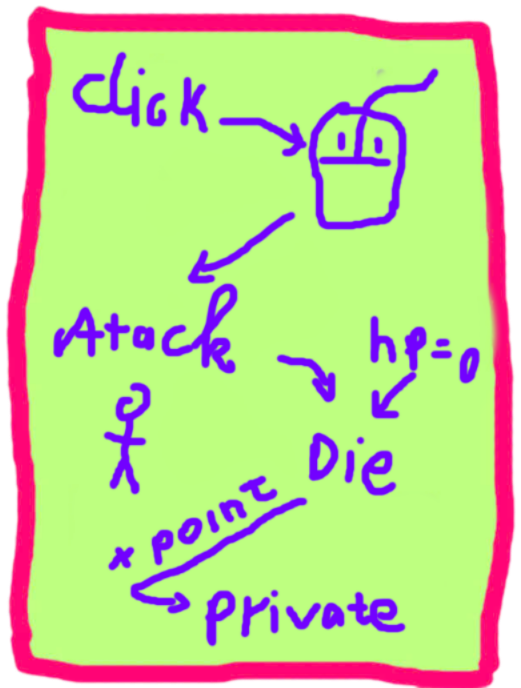 click
Atack
hp=0
Die
x point
private